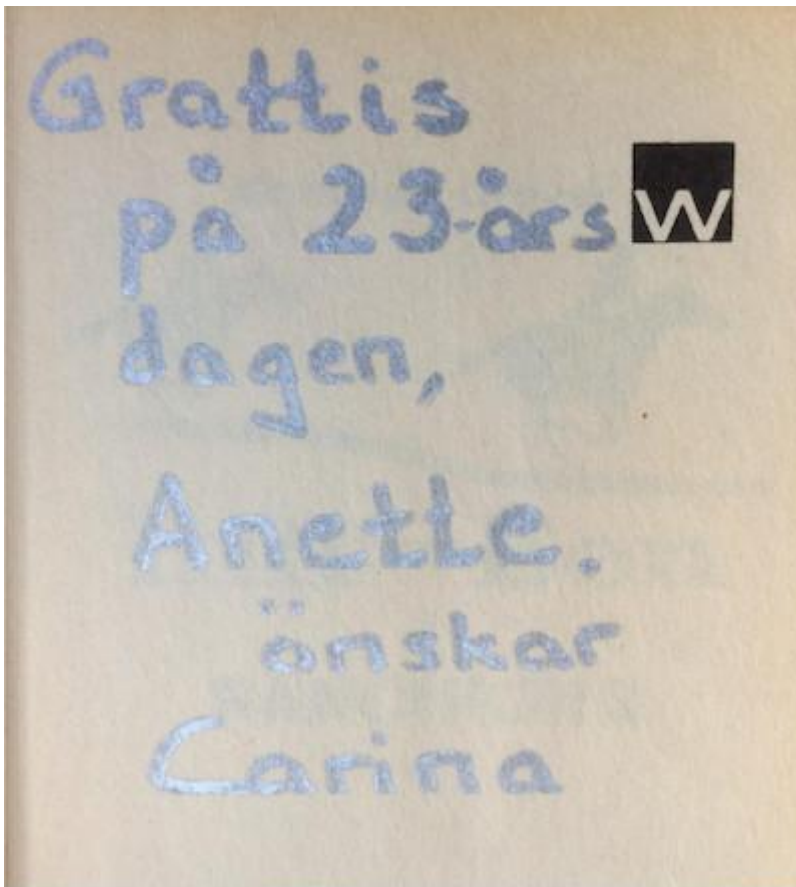 Grattis
på 23-års
W
dagen,
Anette.
önskar
Carina